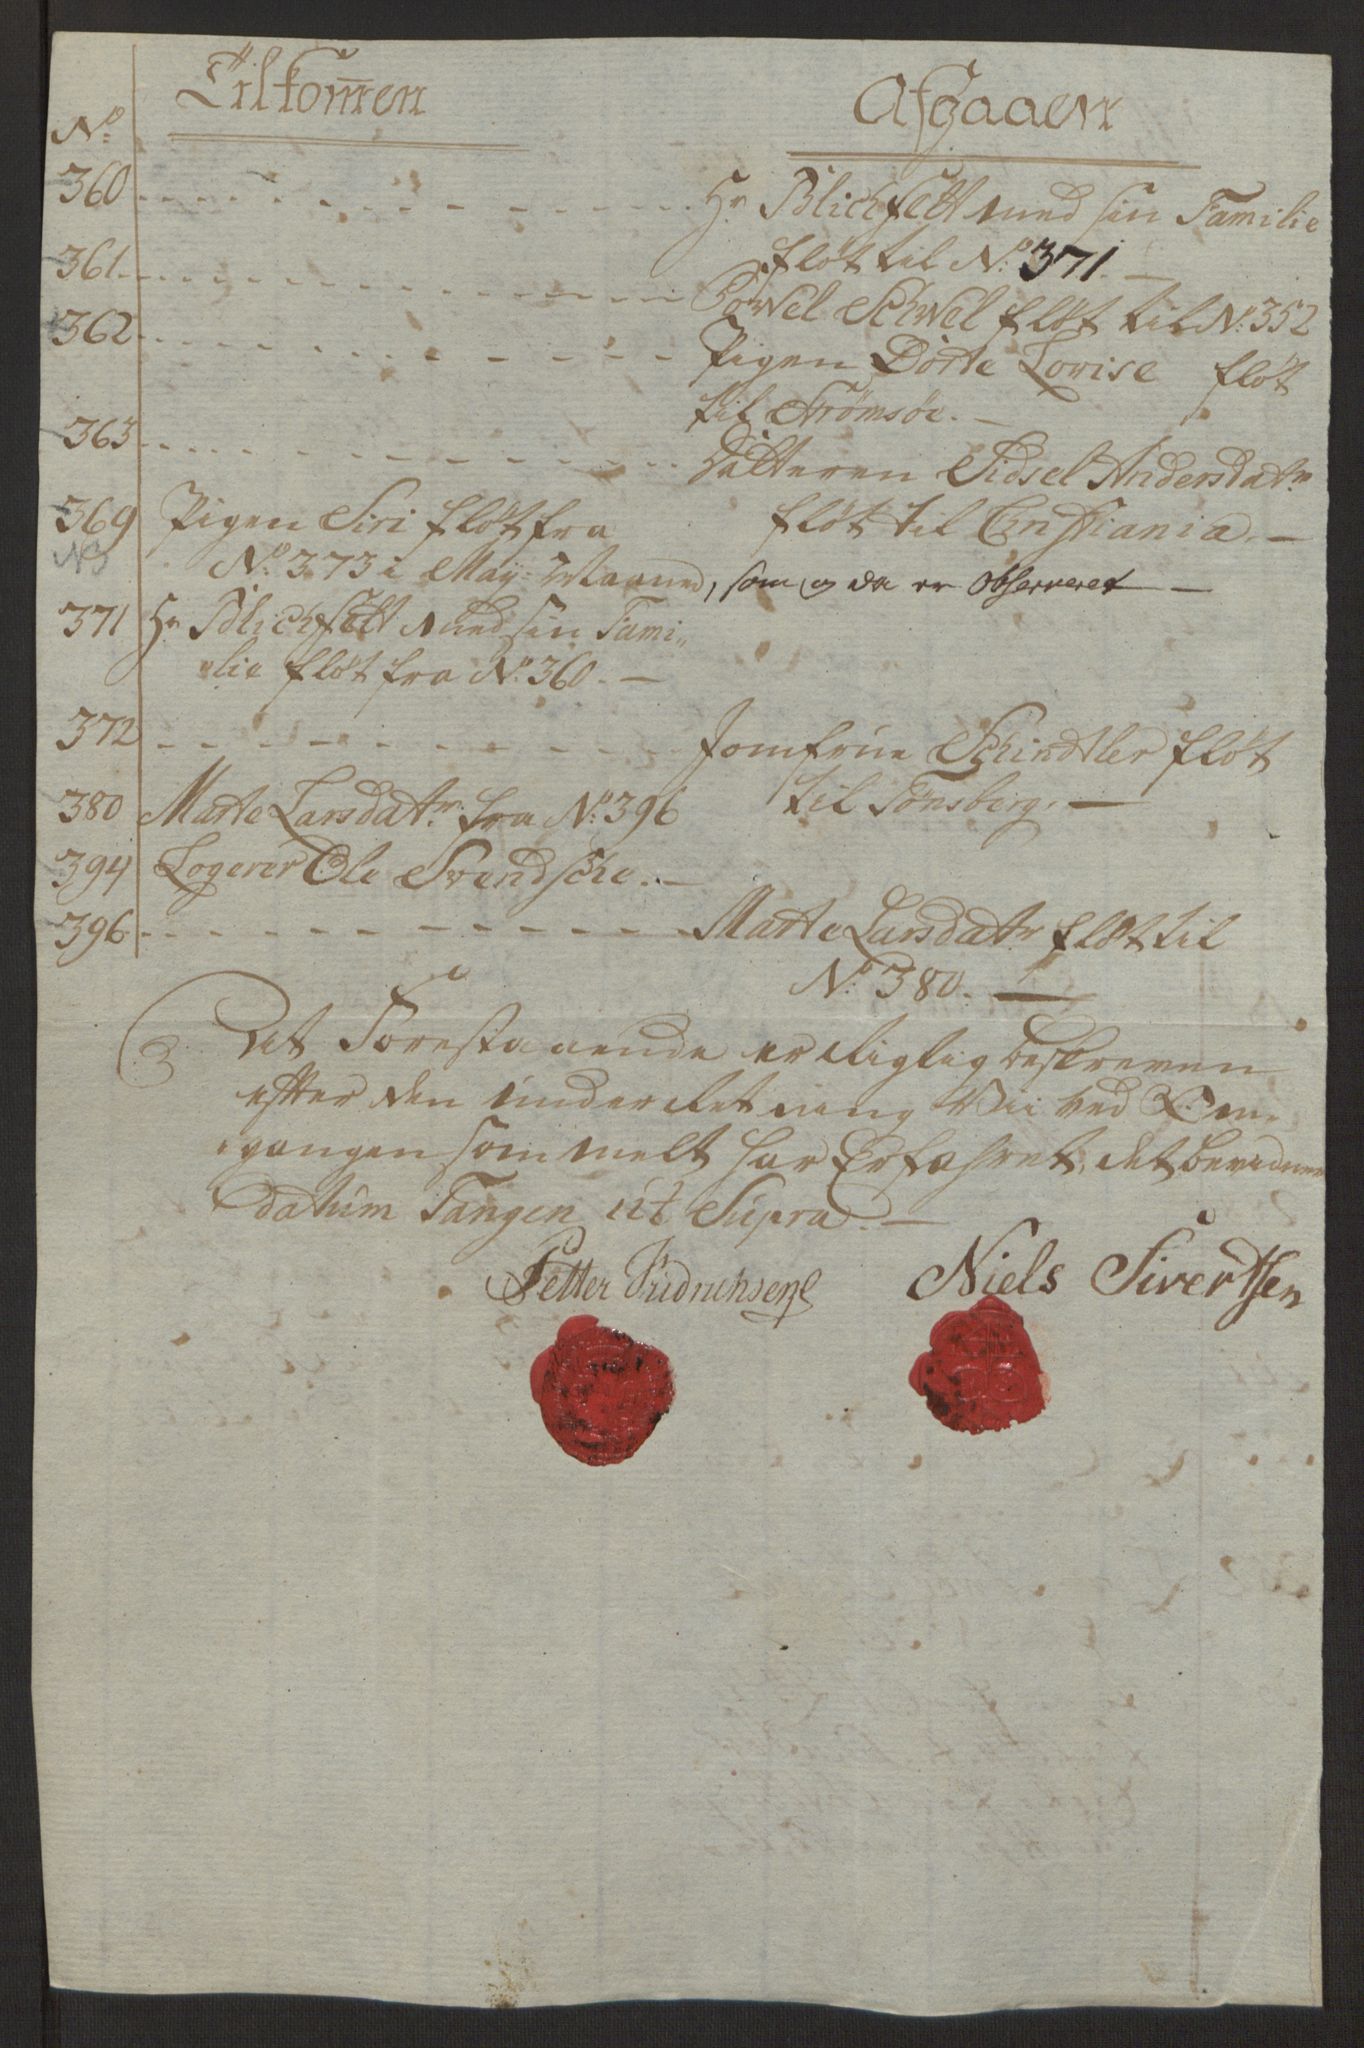 No Tilkom̅en Afgaaen
360 Hr Blichfelt med sin Familie
fløt til No: 371. —
361 Powel Schwel fløt til No: 352
362 Pigen Dorte Lovise fløt
til Strømsøe. —
363 Datteren Sidsel Andersdatr
fløt til Cristiania. —
369 Pigen Siri fløt fra
NB No: 373 i May Maaned, som og da er Observeret —
371 Hr Blichfelt med sin Fami„
„lie fløt fra No: 360. —
372 Jomfrue Schindtler fløt
til Tønsberg. —
380 Marte Larsdatr. fra No: 396
394 Logerer Ole Svendsche. —
396 Marte Larsdatr fløt til
No: 380. —
Det Forestaaende er rigtig beskreven
efter den underretning Vii ved Om„
„gangen som melt har Erfahret, det bevidner
datum Tangen ut Supra. —
Petter Fridrichsen Niels Sivertsen